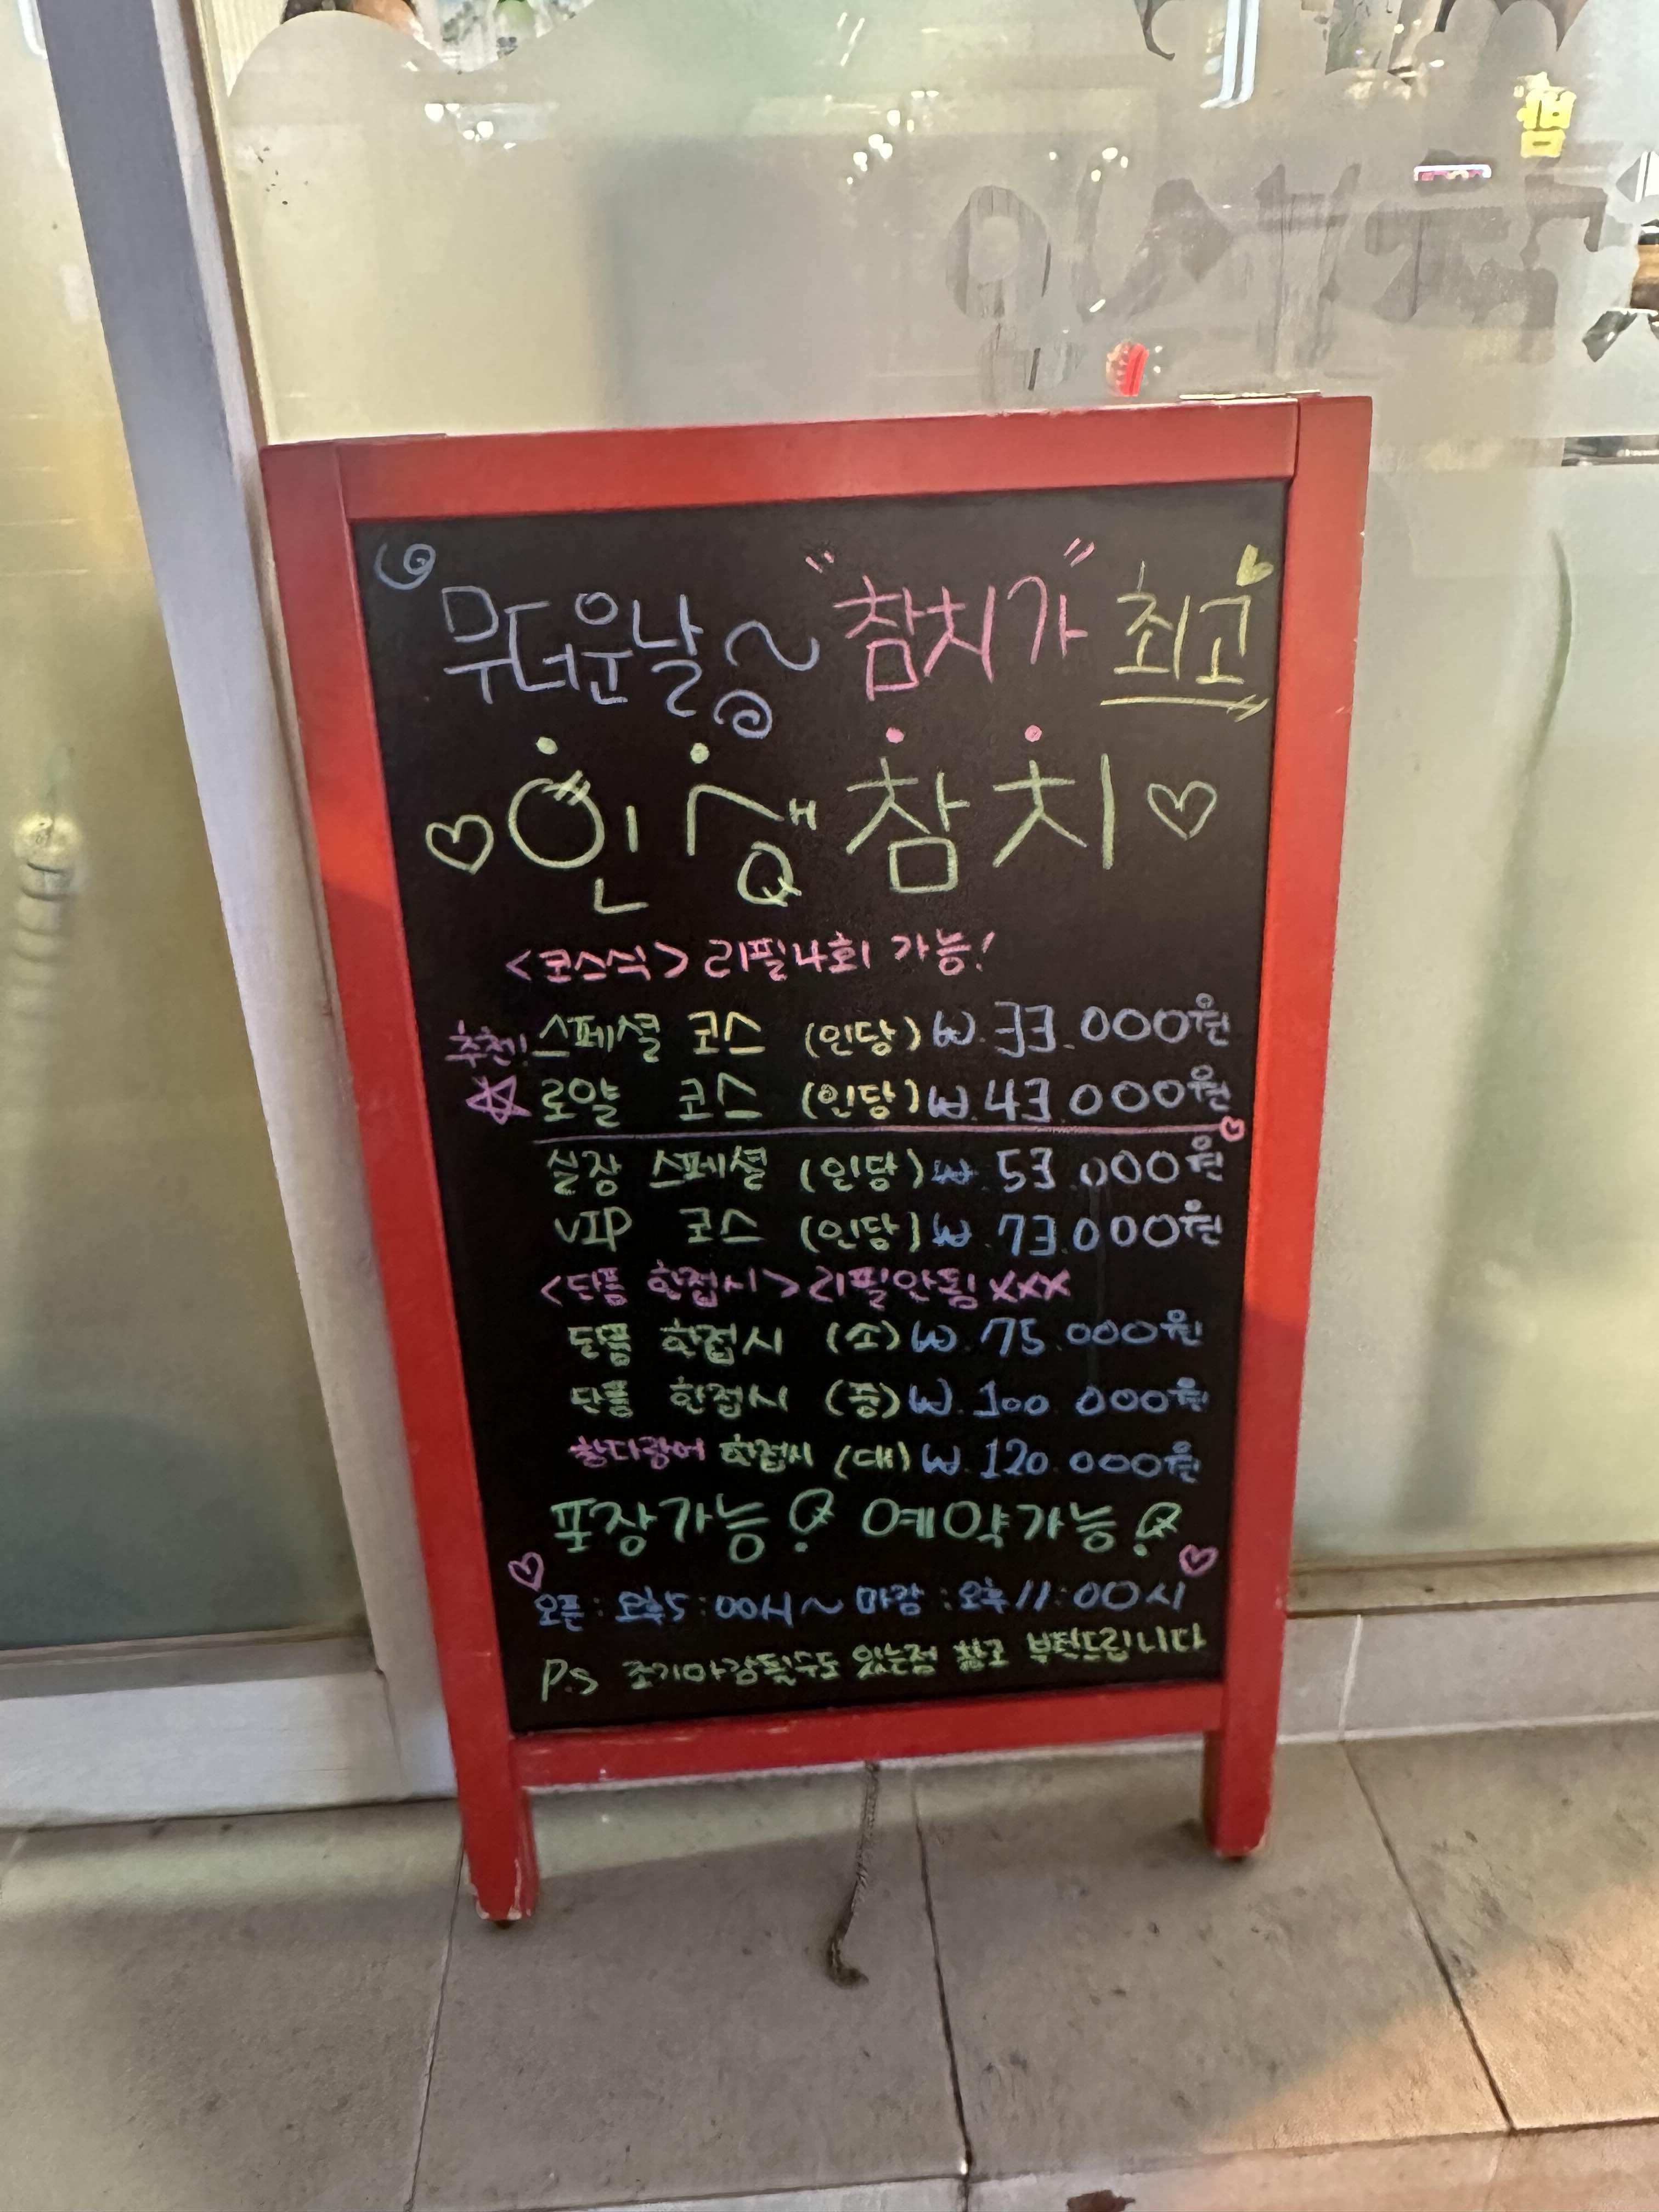 무더운날~ "참치가" 최고
인생참치
<코스식> 리필4회 가능!
추천! 스페셜 코스 (인당) ₩.33.000원
로얄 코스 (인당) ₩.43.000원
실장 스페셜 (인당) ₩.53.000원
VIP 코스 (인당) ₩.73.000원
<단품 한접시> 리필안됨xxx
단품 한접시 (소) ₩.75.000원
단품 한접시 (중) ₩.100.000원
한접시 (대) ₩.120.000원
포장가능! 예약가능!
오픈:오후5:00시~마감:오후11:00시
P.S 조기마감될수도 있는점 참고 부탁드립니다